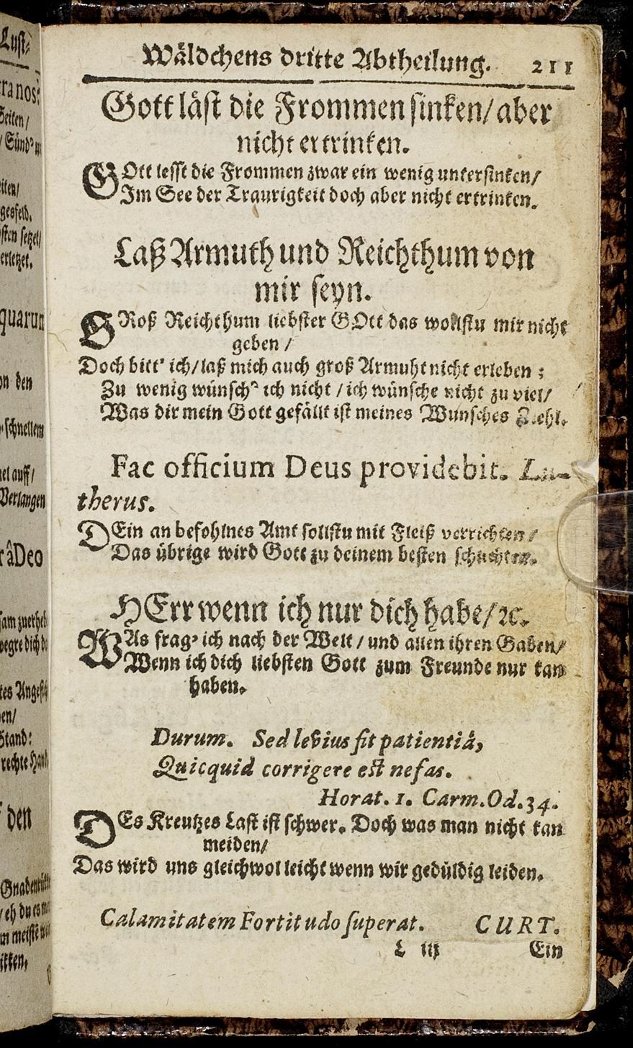 Wäldchens dritte Abtheilung. 211
Gott läst die Frommen sinken/ aber
nicht ertrinken.
GOtt lesst die Frommen zwar ein wenig untersinken/
Im See der Traurigkeit doch aber nicht ertrinken.
Laß Armuth und Reichthum von
mir seyn.
GRoß Reichthum liebster GOtt das wollstu mir nicht
geben /
Doch bitt' ich/ laß mich auch groß Armuht nicht erleben ;
Zu wenig wünsch' ich nicht / ich wünsche nicht zu viel/
Was dir mein Gott gefällt ist meines Wunsches Ziehl.
Fac officium Deus providebit. Lu-
therus.
DEin anbefohlnes Amt sollstu mit Fleiß verrichten /
Das übrige wird Gott zu deinem besten schichten.
HErr wenn ich nur dich habe/ ꝛc.
WAs frag' ich nach der Welt / und allen ihren Gaben/
Wenn ich dich liebsten Gott zum Freunde nur kan
haben.
Durum. Sed levius fit patientiâ,
Quicquid corrigere est nefas.
Horat. 1. Carm. Od. 34.
DEs Kreutzes Last ist schwer. Doch was man nicht kan
meiden/
Das wird uns gleichwol leicht wenn wir gedüldig leiden.
Calamitatem Fortitudo superat. CURT.
L iij Ein